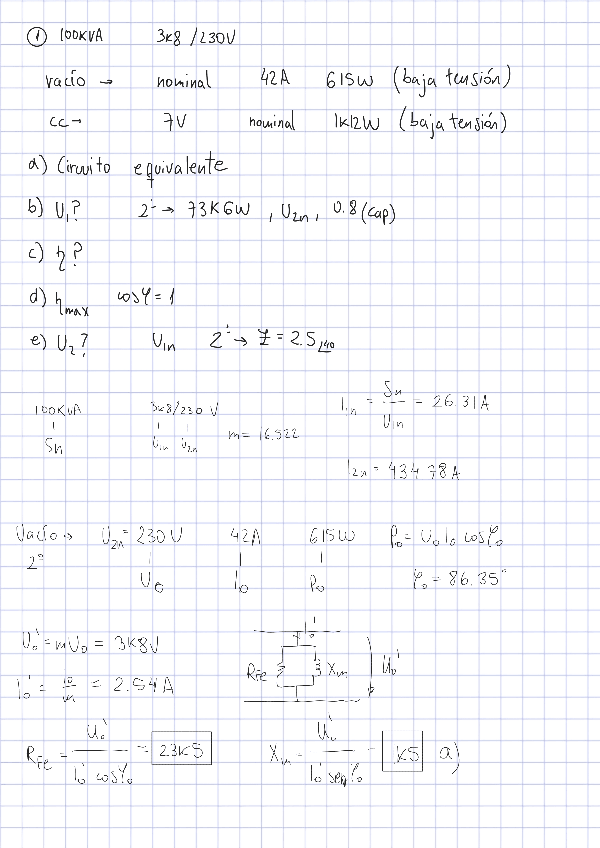 ① 100KVA 3K8/230V
vacío → nominal 42A 615W (baja tensión)
cc → 7V nominal 1K12W (baja tensión)
a) Circuito equivalente
b) U₁? 2º → 73K6W , U₂ₙ, 0.8 (cap)
c) η?
d) ηmax cosφ = 1
e) U₂? U₁ₙ 2º → Z = 2.5∠40
100KVA 3K8/230 V m = 16.522 I₁ₙ = Sn/U₁ₙ = 26.31A
Sn U₁ₙ U₂ₙ
I₂ₙ = 434.78A
Vacío → U₂ₙ = 230V 42A 615W P₀ = U₀ I₀ cosφ₀
2º U₀ I₀ P₀ φ₀ = 86.35°
U₀' = mU₀ = 3K8V
I₀' = I₀/m = 2.54A
I₀' RFe Xm U₀'
RFe = U₀'/I₀' cosφ₀ = 23K5 Xm = U₀'/I₀' senφ₀ = 1K5 a)